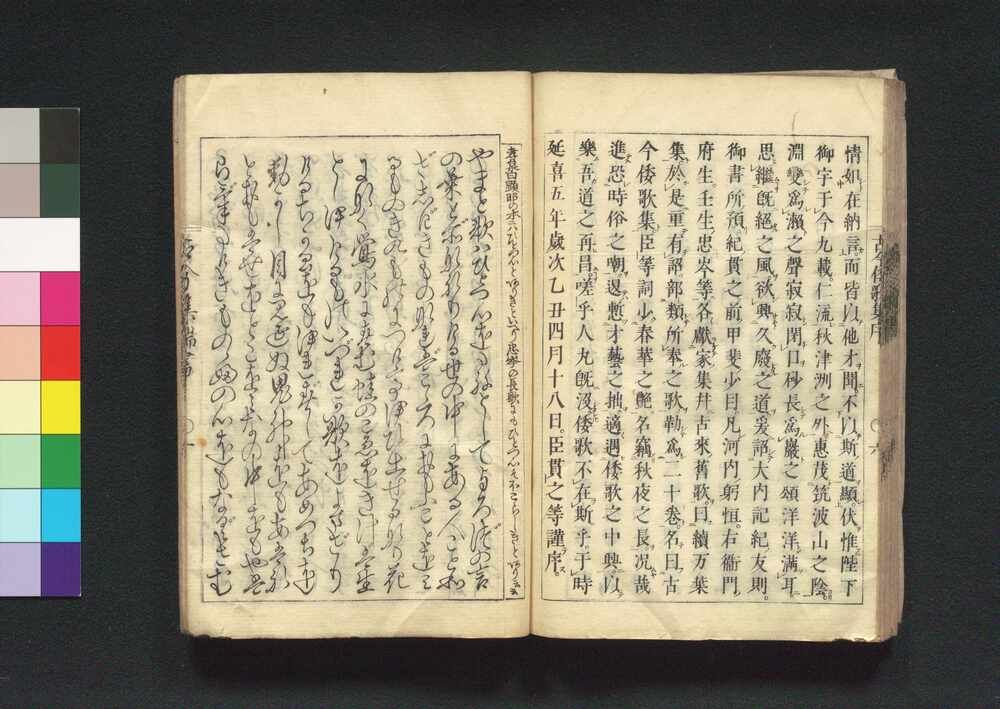 情如在納言。而皆以他才聞。不以斯道顯。伏惟陛下
御宇于今九載。仁流秋津洲之外。惠茂筑波山之陰。
淵變爲瀨之聲寂寂閉口。砂長爲巖之頌洋洋滿耳。
思繼旣絕之風。欲興久廢之道。爰詔大内記紀友則。
御書所預。紀貫之前甲斐少目凡河内躬恒。右衞門
府生。壬生忠岑等各獻家集幷古來舊歌曰。續万葉
集於是重有詔部類所奉之歌勒爲二十卷。名曰。古
今倭歌集臣等詞少春華之艶名竊秋夜之長况哉
進恐時俗之嘲。退慙才藝之拙。適遇倭歌之中興以
樂吾道之再昌。嗟乎人丸旣沒倭歌不在斯乎于時
延喜五年歲次乙丑四月十八日。臣貫之等謹序。
やまと歌ハひとのこゝろを種としてよろづの言
の葉とぞなれりける世の中にある人ことわ
ざしげきものなればこゝろにおもふことを見
るものきくものにつけていひ出せるなり花
になく鶯水にすむ蛙のこゑをきけばいき
としいけるものいづれか歌をよまざり
けるちからをもいれずしてあめつちを
動かし目に見えぬ鬼神をもあはれ
とおもはせをとこをんなの中をもやは
らげたけきものゝふの心をもなぐさむ